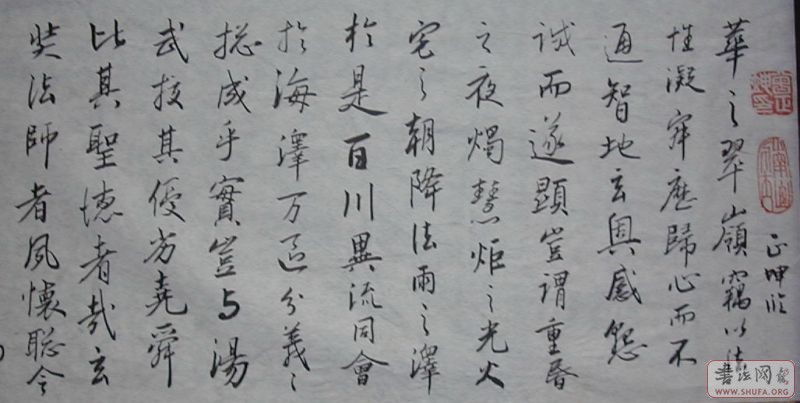 正坤臨
華之翠嶺竊以法
性凝寂靡歸心而不
通智地玄奧感懇
誠而遂顯豈謂重昏
之夜燭慧炬之光火
宅之朝降法雨之澤
於是百川異流同會
於海澤万區分義〻
総成乎實豈与湯
武校其優劣堯舜
比其聖德者哉玄
奘法師者夙懷聡令
書法网
WWW.SHUFA.ORG